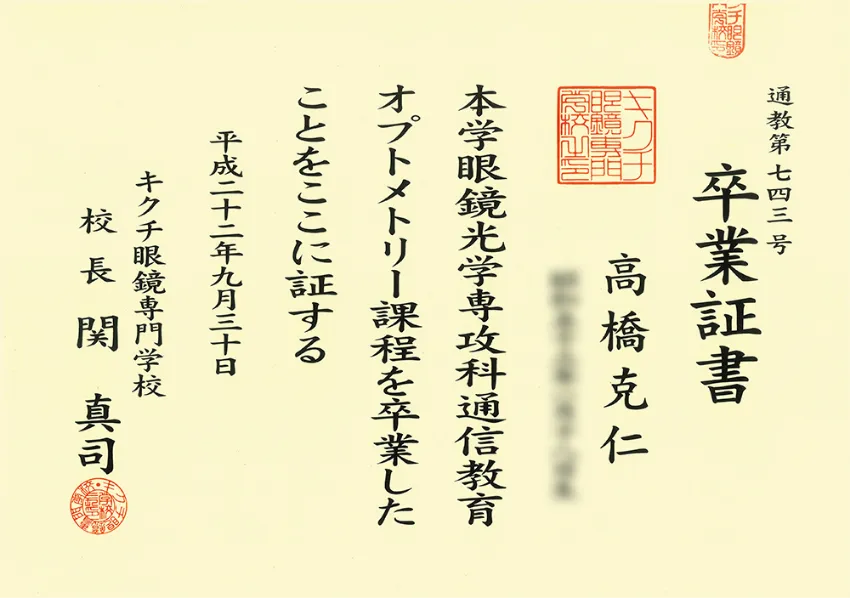 通教第七四三号
卒業証書
高橋克仁
キクチ
眼鏡専門
学校之印
本学眼鏡光学専攻科通信教育
オプトメトリー課程を卒業した
ことをここに証する
平成二十二年九月三十日
キクチ眼鏡専門学校
校長 関 真司